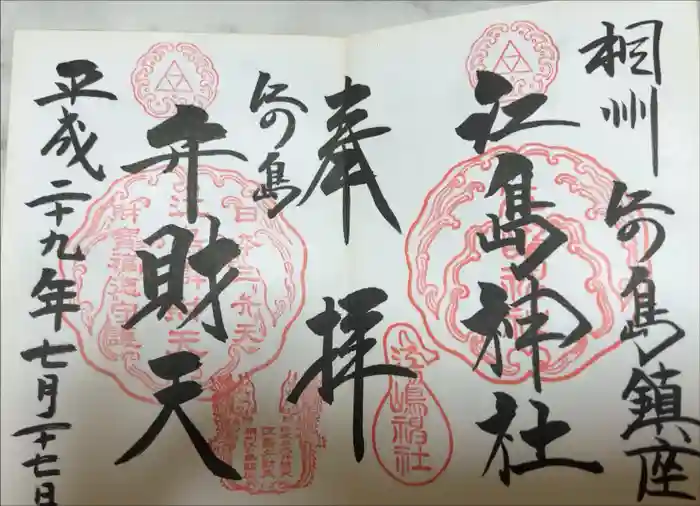 相州
江の島鎮座
江島神社
奉拝
江の島
弁財天
平成二十九年七月二十七日
江嶋神社